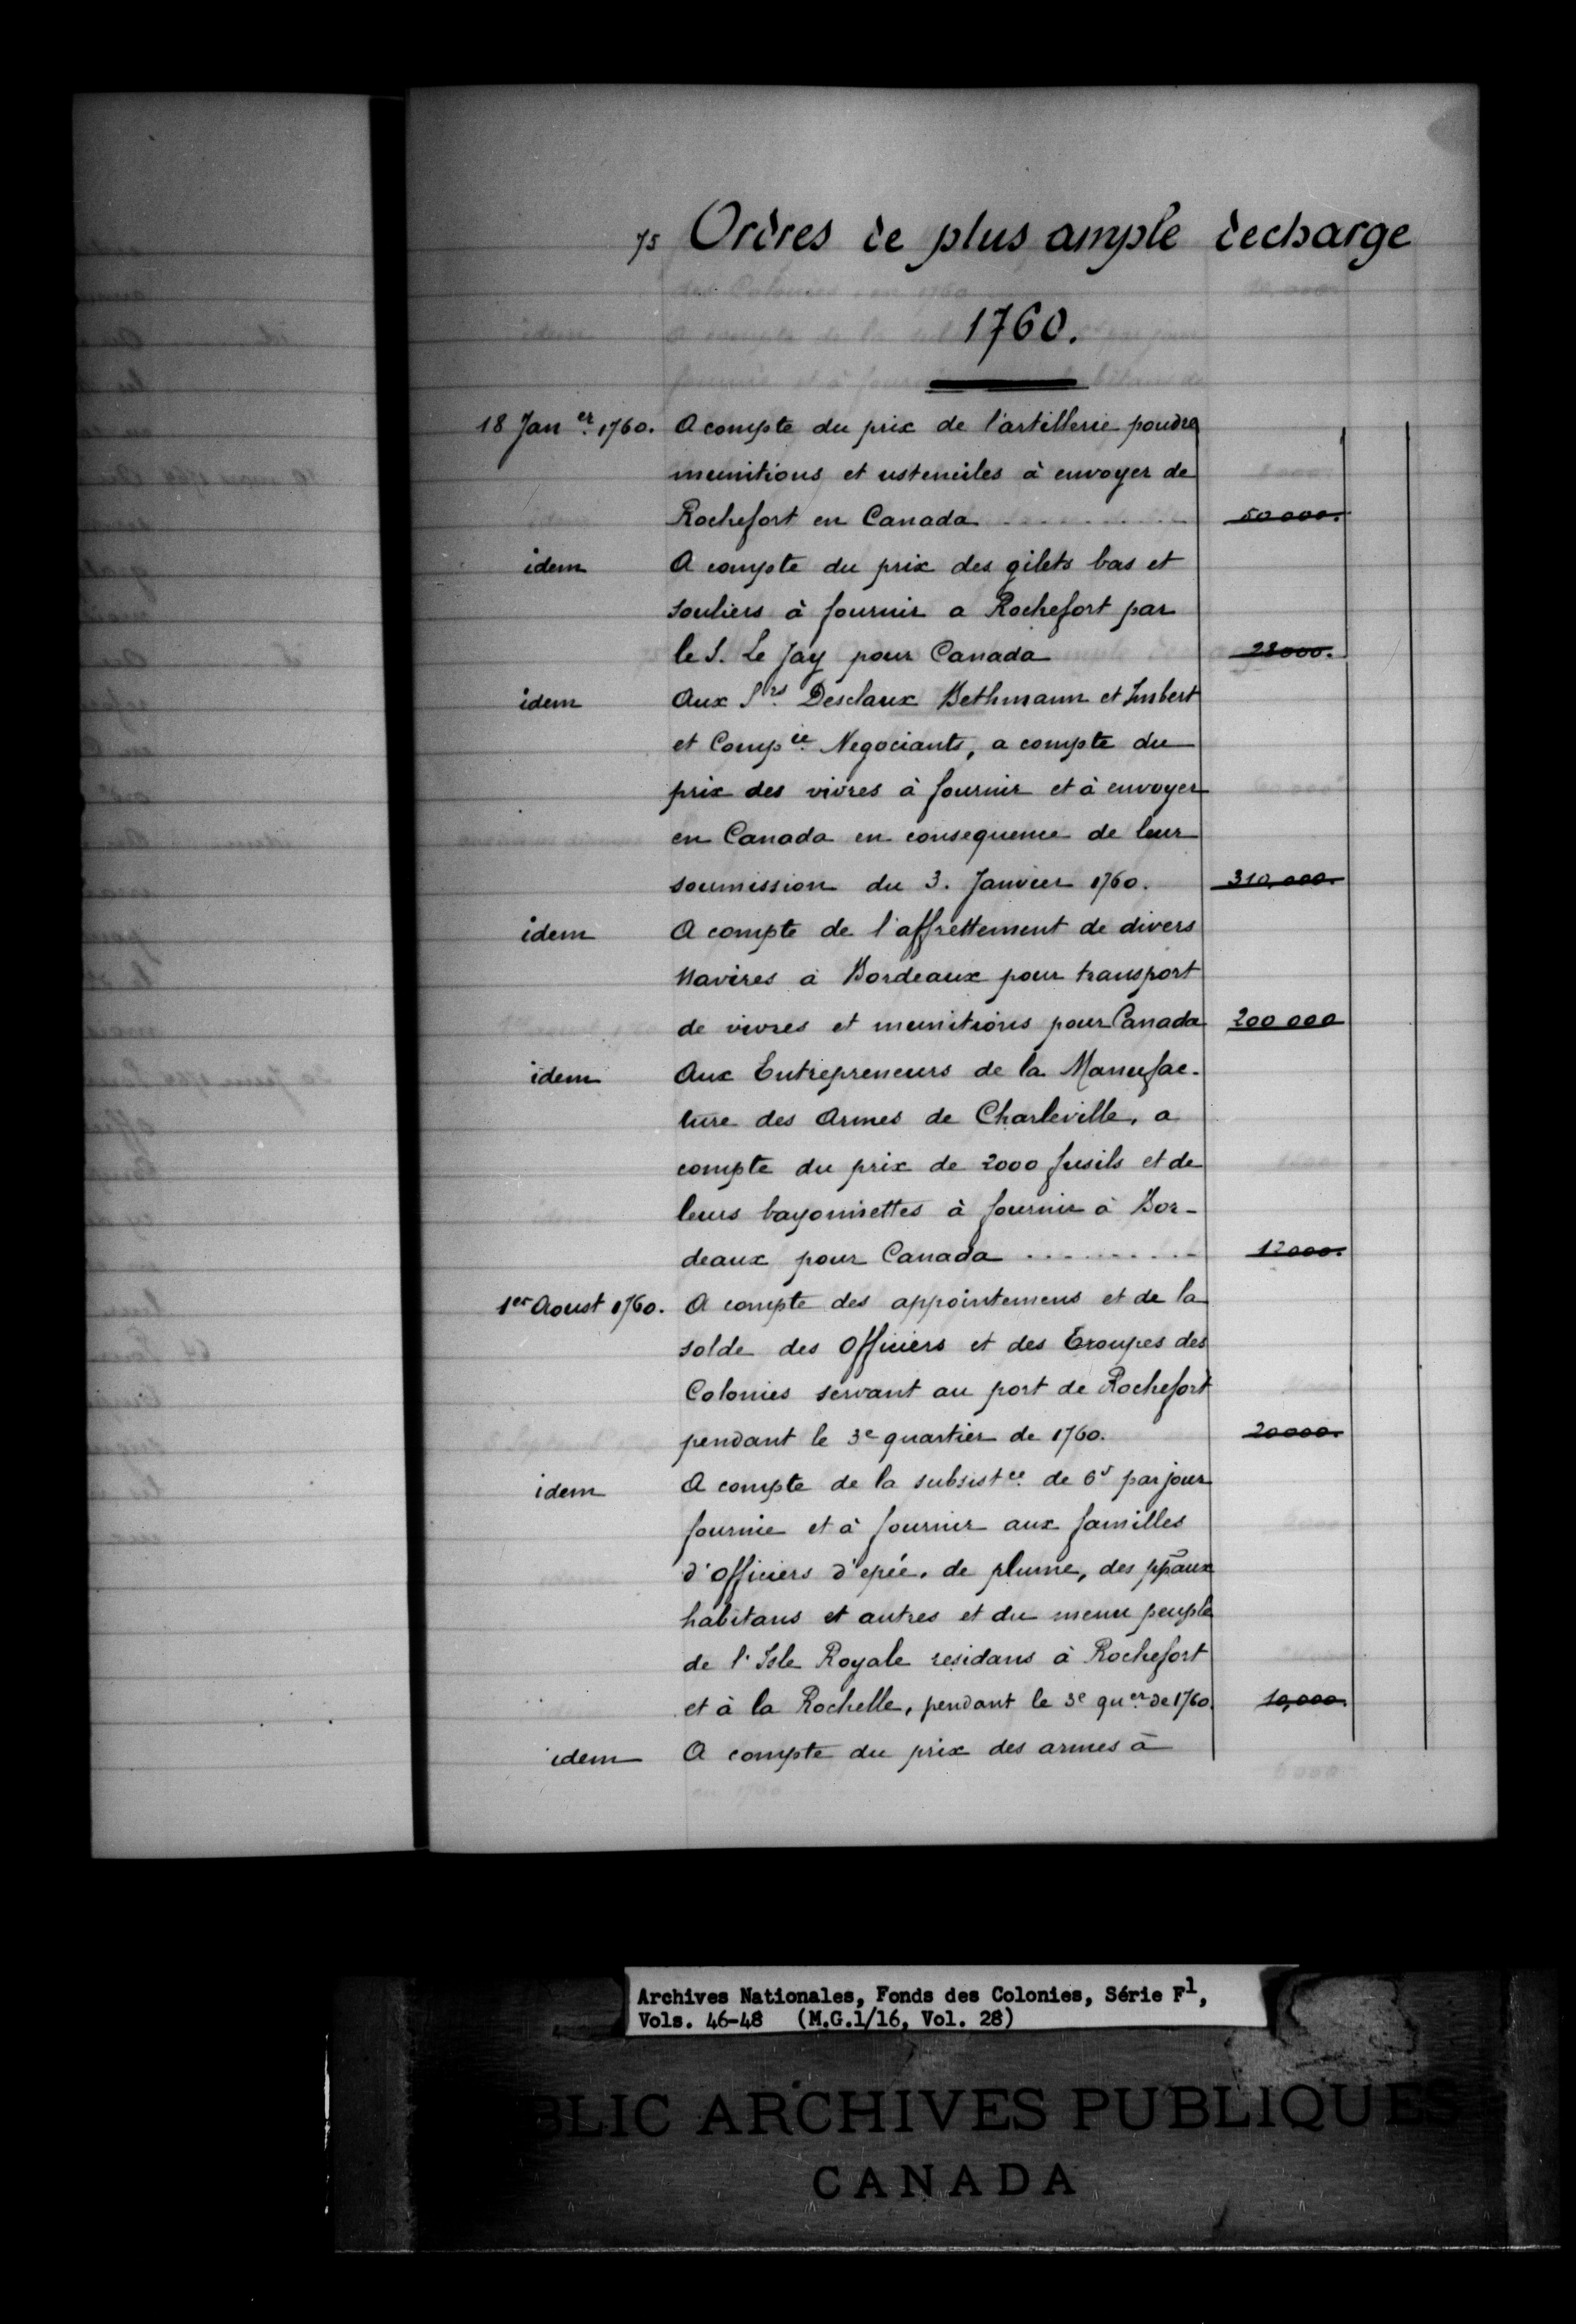 75 Ordres de plus ample decharge
1760.
18 Janer. 1760. A compte du prix de l'artillerie poudre
munitions et ustenciles à envoyer de
Rochefort en Canada .......... 50 000.
idem A compte du prix des gilets bas et
souliers à fournir a Rochefort par
le S. Le Jay pour Canada 28000.
idem Aux Srs. Desclaux Bethmann et Imbert
et Compie. Negociants, a compte du
prix des vivres à fournir et à envoyer
en Canada en consequence de leur
soumission du 3. Janvier 1760. 310,000.
idem A compte de l'affrettement de divers
Navires à Bordeaux pour transport
de vivres et munitions pour Canada 200 000
idem Aux Entrepreneurs de la Manufac-
ture des Armes de Charleville, a
compte du prix de 2000 fusils et de
leurs bayonnettes à fournir à Bor-
deaux pour Canada .......... 12000.
1er Aoust 1760. A compte des appointemens et de la
solde des Officiers et des Troupes des
Colonies servant au port de Rochefort
pendant le 3e quartier de 1760. 20000.
idem A compte de la subsistce. de 6s par jour
fournie et à fournir aux familles
d'Officiers d'epée, de plume, des ppaux
habitans et autres et du menu peuple
de l'Isle Royale residans à Rochefort
et à la Rochelle, pendant le 3e quer. de 1760. 10,000.
idem A compte du prix des armes à
Archives Nationales, Fonds des Colonies, Série F1,
Vols. 46-48 (M.G.1/16, Vol. 28)
BLIC ARCHIVES PUBLIQUES
CANADA